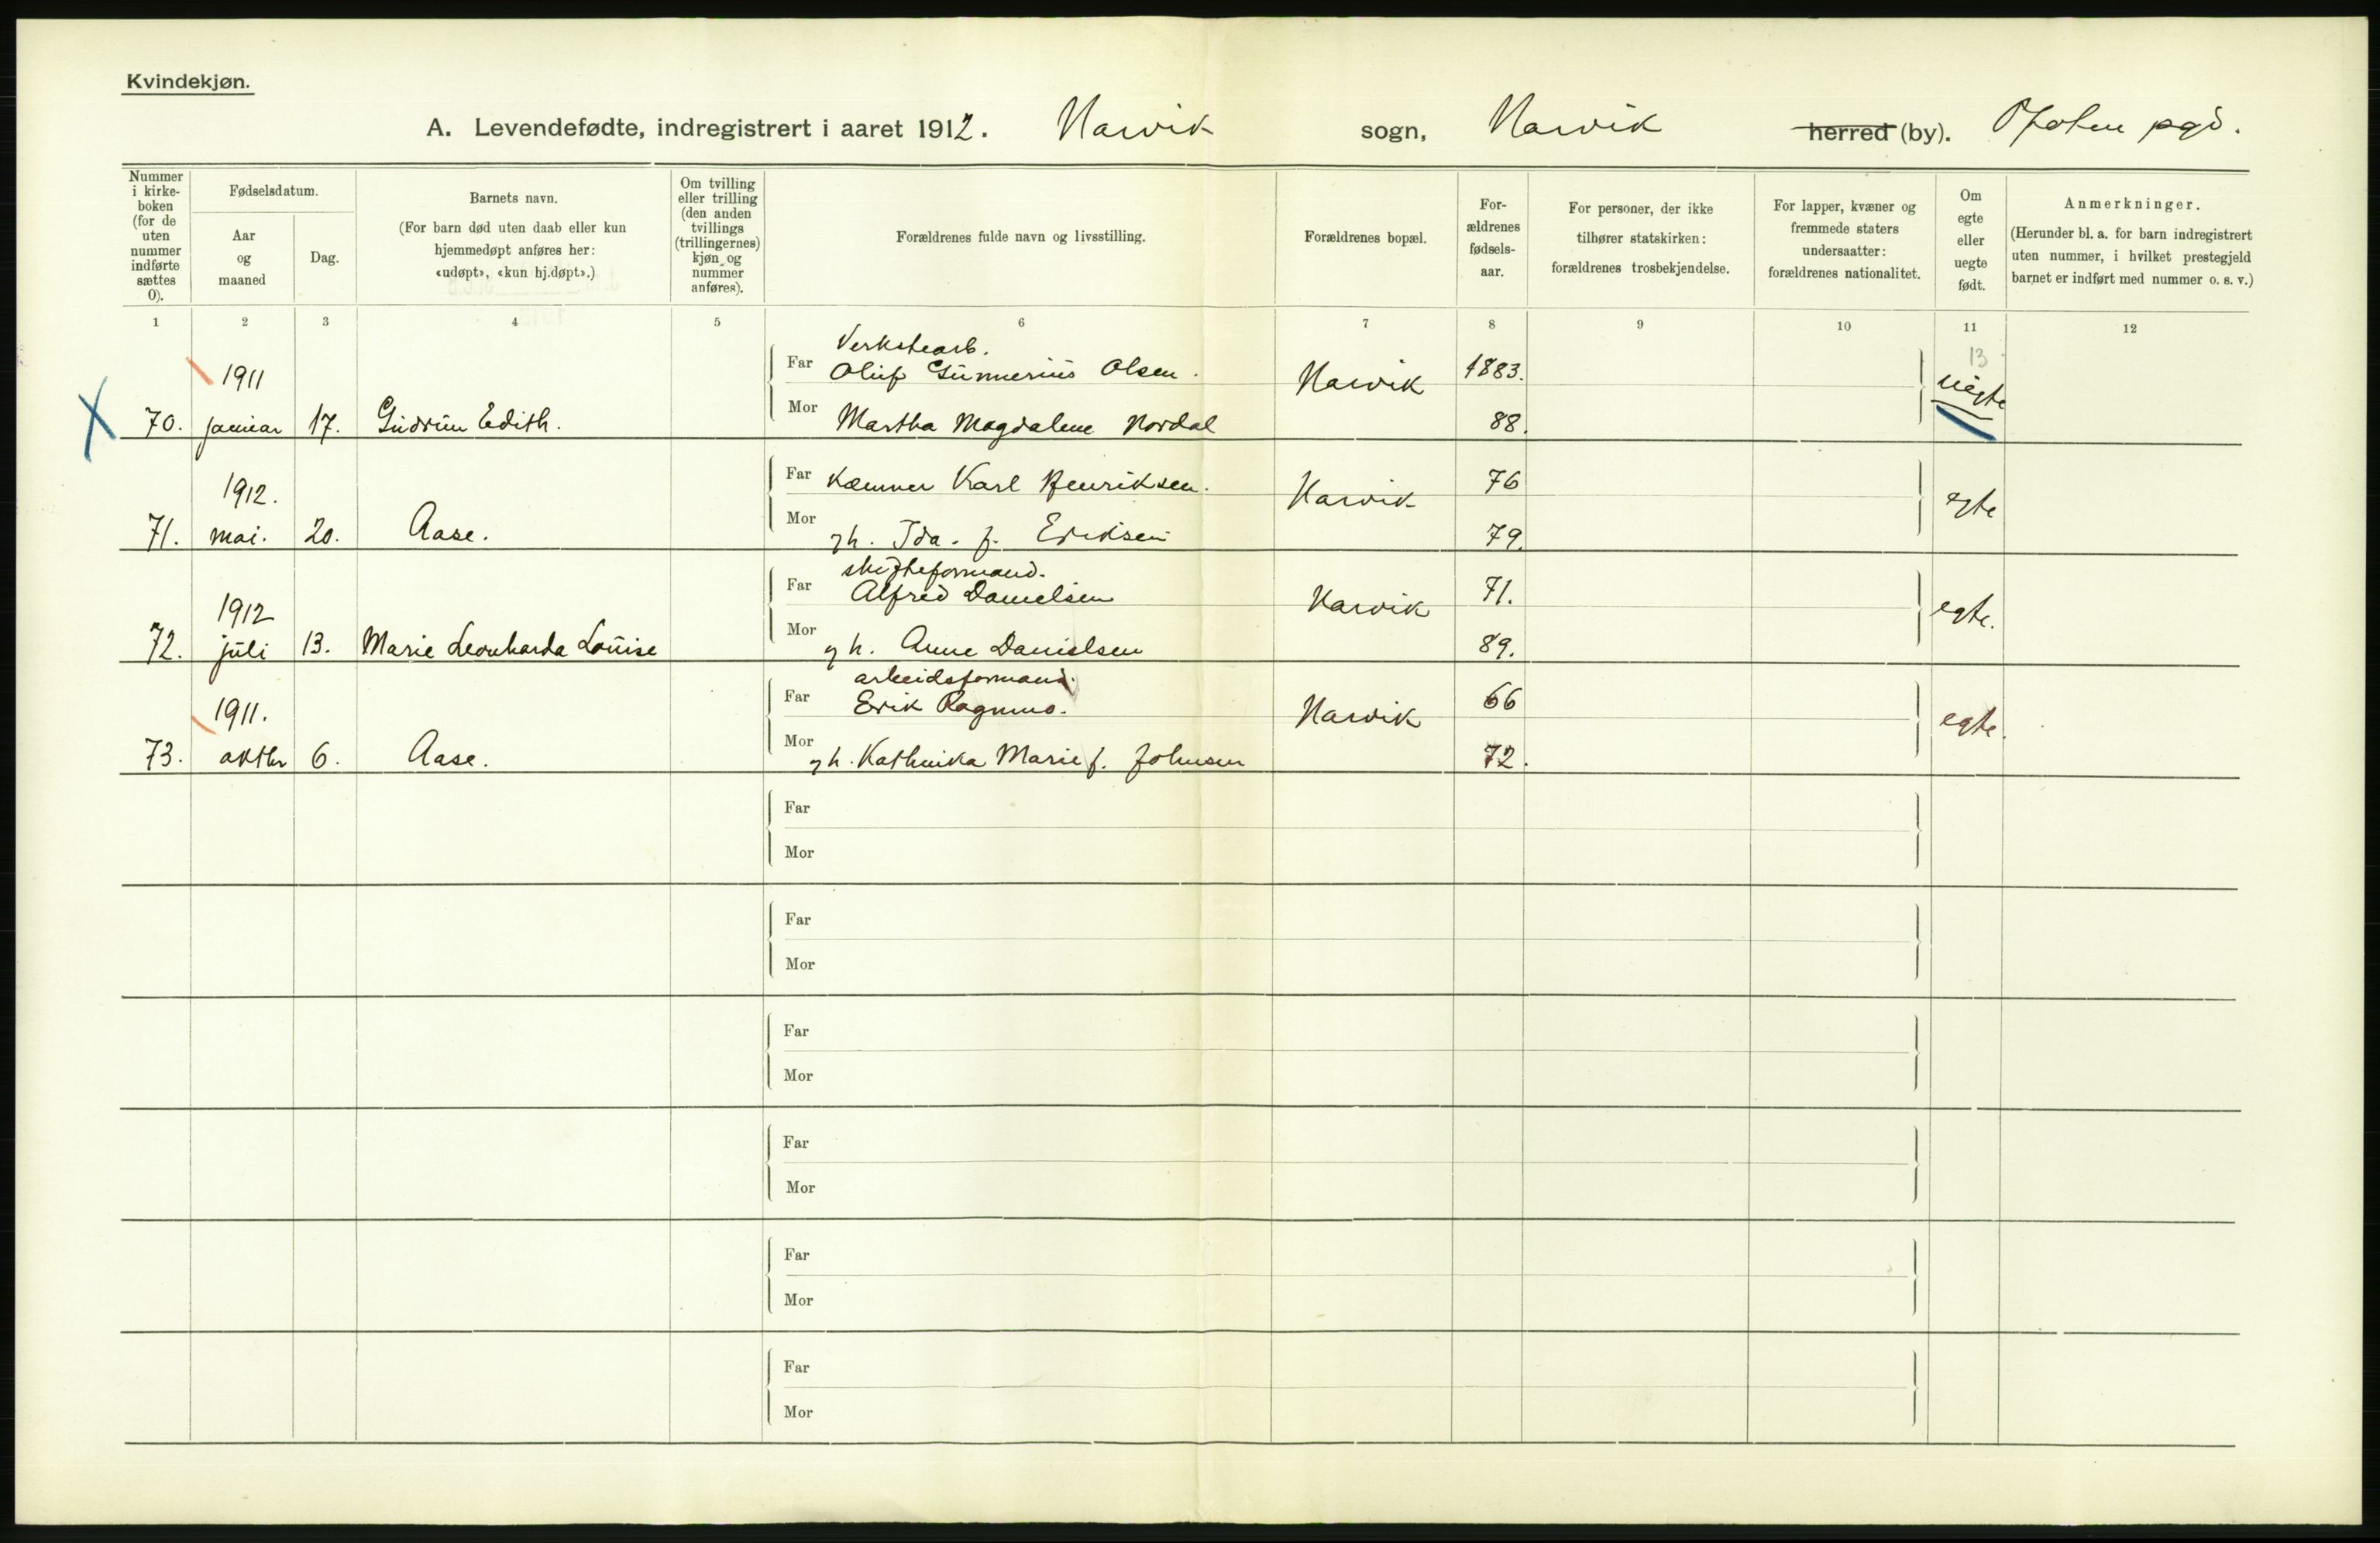 Kvindekjøn.
A. Levendefødte, indregistrert i aaret 1912. Narvik sogn, Narvik herred (by). Ofoten pgd.
Nummer i kirke-boken (for de uten nummer indførte sættes 0).
Fødselsdatum.
Aar og maaned
Dag.
Barnets navn.
(For barn død uten daab eller kun
hjemmedøpt anføres her:
«udøpt», «kun hj.døpt».)
Om tvilling
eller trilling
(den anden
tvillings
(trillingernes)
kjøn og
nummer
anføres).
Forældrenes fulde navn og livsstilling.
Forældrenes bopæl.
For-
ældrenes
fødsels-
aar.
For personer, der ikke
tilhører statskirken:
forældrenes trosbekjendelse.
For lapper, kvæner og
fremmede staters
undersaatter:
forældrenes nationalitet.
Om
egte
eller
uegte
født.
Anmerkninger.
(Herunder bl. a. for barn indregistrert
uten nummer, i hvilket prestegjeld
barnet er indført med nummer o. s. v.)
1 2 3 4 5 6 7 8 9 10 11 12
13
Verkstearb.
1911 Far Oluf Gunnerius Olsen. Narvik 1883. uegte
70. januar 17. Gudrun Edith. Mor Martha Magdalene Nordal 88.
1912. Far Kæmner Karl Henriksen. Narvik 76 egte
71. mai. 20. Aase. Mor gh. Ida. f. Eriksen 79.
skifteformand.
1912 Far Alfred Danielsen Narvik 71. egte.
72. juli 13. Marie Leonharda Louise Mor gh. Anne Danielsen 89.
arbeidsformand.
1911. Far Erik Rognmo. Narvik 66 egte.
73. oktbr 6. Aase. Mor gh. Marie f. Johnsen 72.
Far
Mor
Far
Mor
Far
Mor
Far
Mor
Far
Mor
Far
Mor